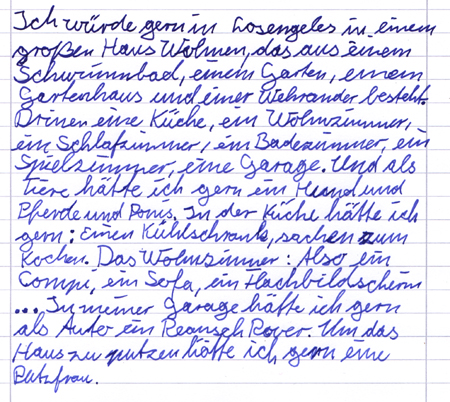 Ich würde gern in Losengeles in einem
großen Haus Wohnen, das aus einem
Schwimmbad, einem Garten, einem
Gartenhaus und einer Wehrander besteht.
Drinen eine Küche, ein Wohnzimmer,
ein Schlafzimmer, ein Badezimmer, ein
Spielzimmer, eine Garage. Und als
Tiere hätte ich gern ein Hund und
Pferde und Ponis. In der Küche hätte ich
gern: Einen Kühlschrank, sachen zum
Kochen. Das Wohnzimmer: Also, ein
Compi, ein Sofa, ein Flachbildschirm
... In meiner Garage hätte ich gern
als Auto ein Reansch Rover. Um das
Haus zu putzen hätte ich gern eine
Putzfrau.